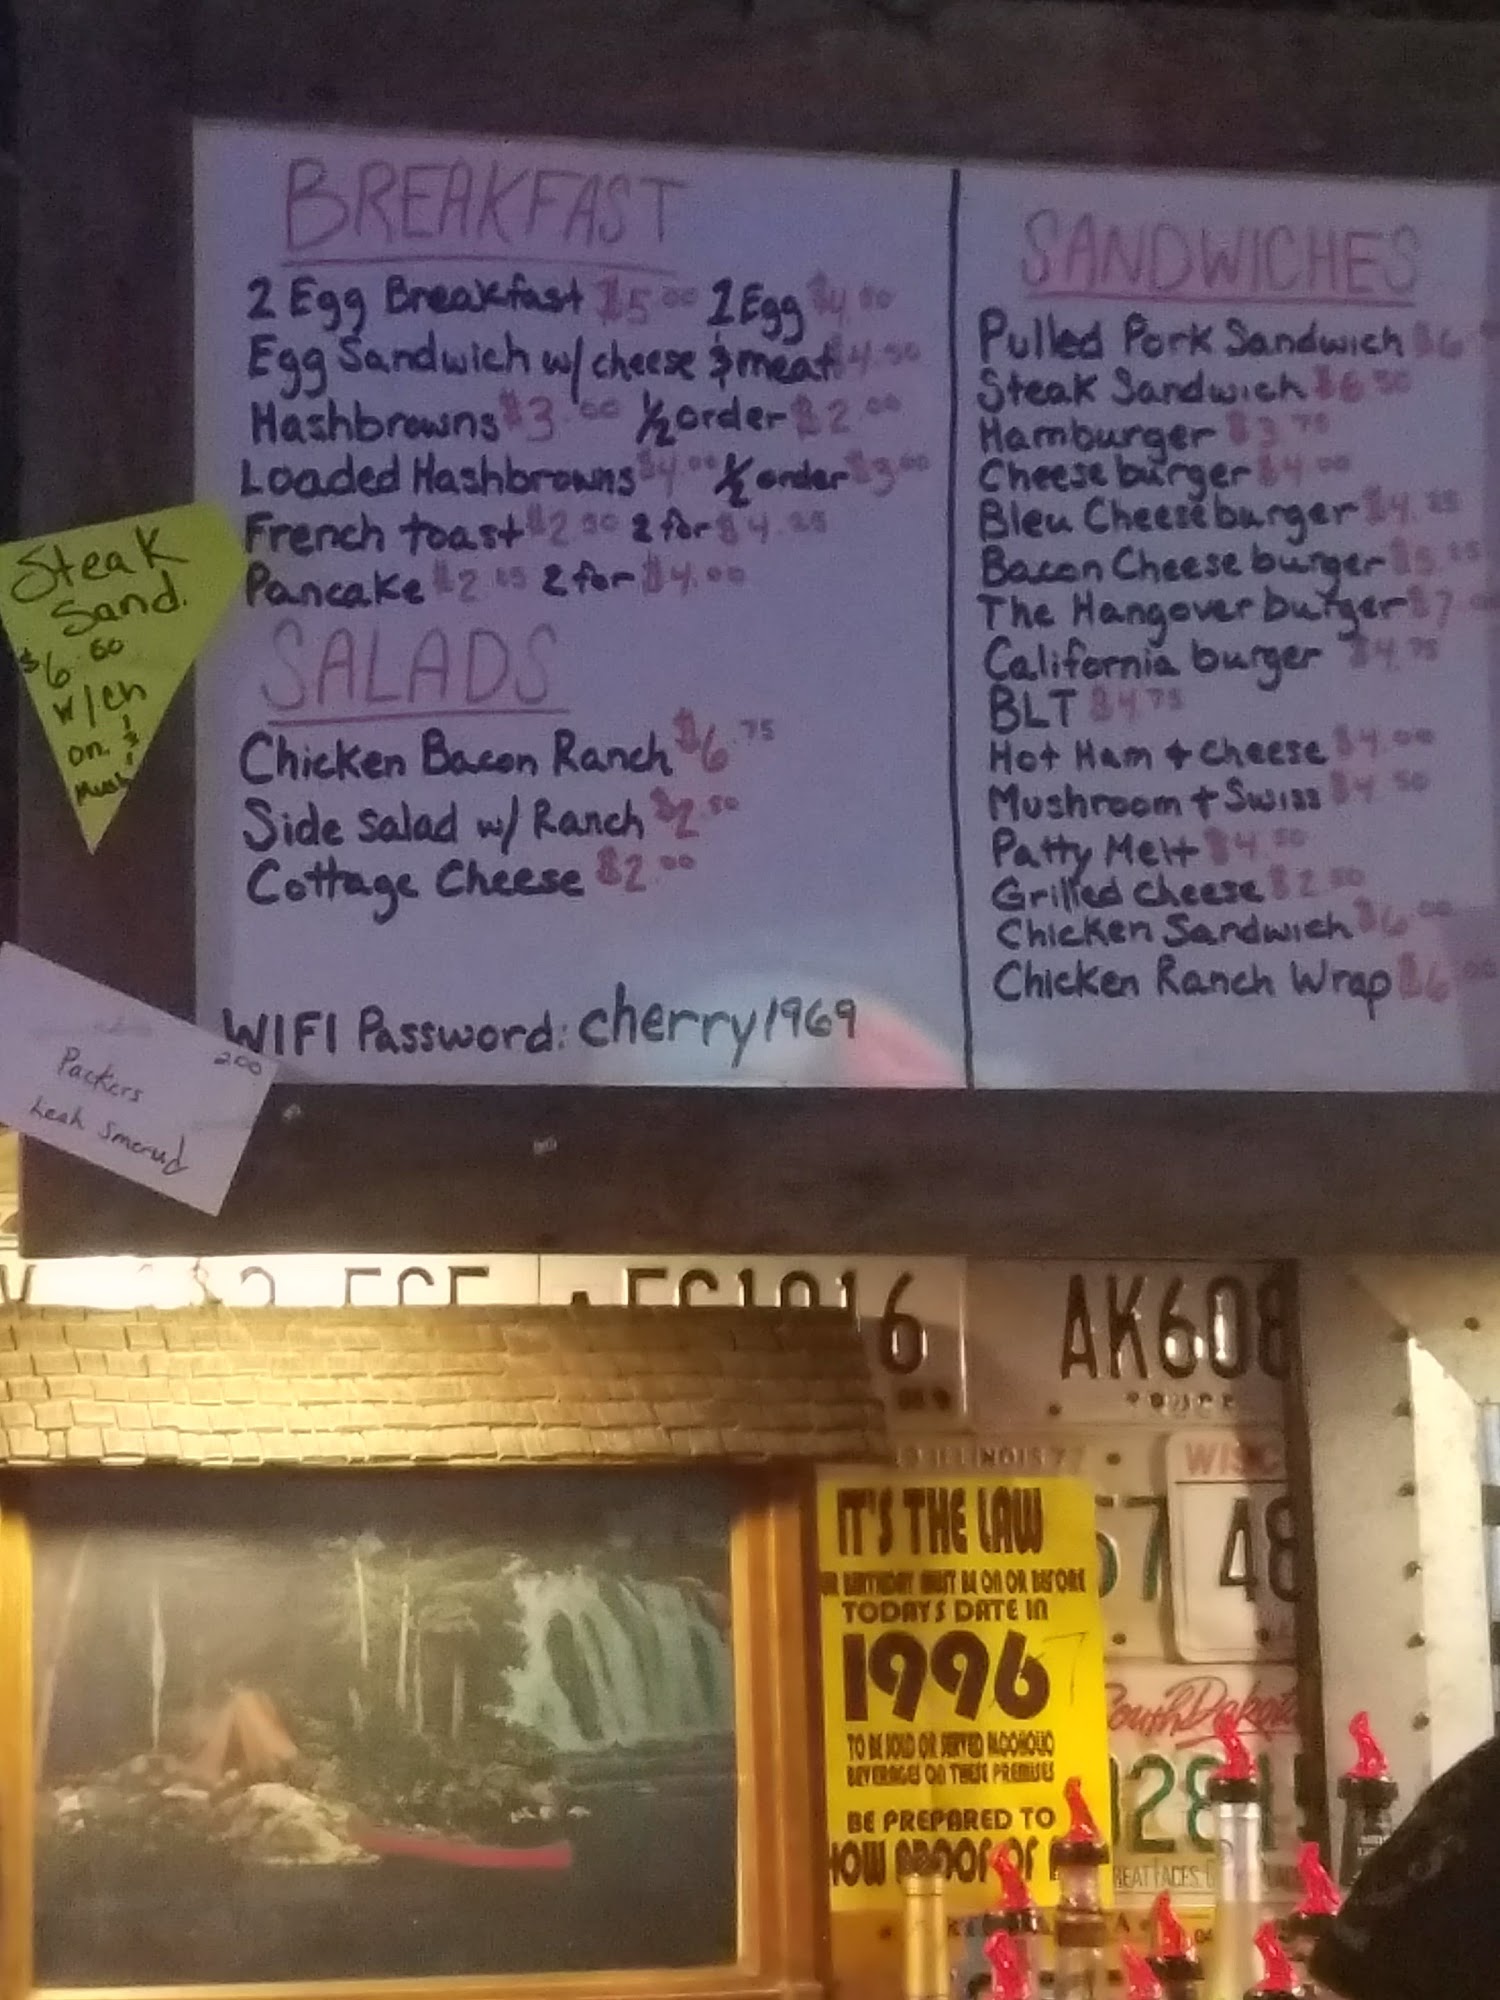 BREAKFAST
2 Egg Breakfast $5.00 1 Egg $4.00
Egg Sandwich w/ cheese & meat $4.50
Hashbrowns $3.00 1/2 order $2.00
Loaded Hashbrowns $4.00 1/2 order $3.00
French toast $2.50 2 for $4.25
Pancake $2.25 2 for $4.00
SALADS
Chicken Bacon Ranch $6.75
Side Salad w/ Ranch $2.50
Cottage Cheese $2.00
WIFI Password: cherry1969
SANDWICHES
Pulled Pork Sandwich $6
Steak Sandwich $6.50
Hamburger $3.75
Cheeseburger $4.00
Bleu Cheeseburger $4.25
Bacon Cheeseburger $5.25
The Hangover burger $7
California burger $4.75
BLT $4.75
Hot Ham + Cheese $4.00
Mushroom + Swiss $4.50
Patty Melt $4.50
Grilled Cheese $2.50
Chicken Sandwich $6.00
Chicken Ranch Wrap $6.00
Steak
Sand.
$6.50
w/ch
on. &
Mush
200
Packers
Leah
6
AK608
ILLINOIS 77
WISC
57
48
South Dakota
IT'S THE LAW
BIRTHDAY MUST BE ON OR BEFORE
TODAYS DATE IN
1996 7
TO BE SOLD OR SERVED ALCOHOLIC
BEVERAGES ON THESE PREMISES
BE PREPARED TO
HOW PROOF OF